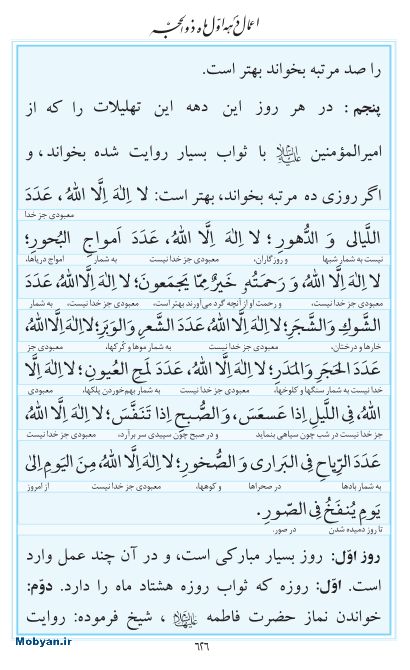 اعمال دهه اوّل ماه ذو الحجّه
را صد مرتبه بخواند بهتر است.
پنجم: در هر روز این دهه این تهلیلات را که از
امیرالمؤمنین علیه‌السلام با ثواب بسیار روایت شده بخواند، و
اگر روزی ده مرتبه بخواند، بهتر است: لا اِلٰهَ اِلَّا اللهُ، عَدَدَ
معبودی جز خدا
اللَّیالی وَ الدُّهورِ؛ لا اِلٰهَ اِلَّا اللهُ، عَدَدَ اَمواجِ البُحورِ؛
نیست به شمار شبها و روزگاران، معبودی جز خدا نیست به شمار امواج دریاها،
لا اِلٰهَ اِلَّا اللهُ، وَ رَحمَتُهُ خَیرٌ مِمّا یَجمَعونَ؛ لا اِلٰهَ اِلَّا اللهُ، عَدَدَ
معبودی جز خدا نیست، و رحمت او از آنچه گرد می‌آورند بهتر است، معبودی جز خدا نیست، به شمار
الشَّوکِ وَ الشَّجَرِ؛ لا اِلٰهَ اِلَّا اللهُ عَدَدَ الشَّعرِ وَ الوَبَرِ؛ لا اِلٰهَ اِلَّا اللهُ،
خارها و درختان، معبودی جز خدا نیست به شمار موها و کُرکها، معبودی جز
عَدَدَ الحَجَرِ وَ المَدَرِ؛ لا اِلٰهَ اِلَّا اللهُ، عَدَدَ لَمحِ العُیونِ؛ لا اِلٰهَ اِلَّا
خدا نیست به شمار سنگها و کلوخها، معبودی جز خدا نیست به شمار بهم‌خوردن پلکها، معبودی
اللهُ، فِی اللَّیلِ اِذا عَسعَسَ، وَ الصُّبحِ اِذا تَنَفَّسَ؛ لا اِلٰهَ اِلَّا اللهُ،
جز خدا نیست در شب چون سیاهی بنماید و در صبح چون سپیدی سر برآرد، معبودی جز خدا نیست
عَدَدَ الرِّیاحِ فِی البَراری وَ الصُّخورِ؛ لا اِلٰهَ اِلَّا اللهُ، مِنَ الیَومِ اِلیٰ
به شمار بادها در صحراها و کوهها، معبودی جز خدا نیست از امروز
یَومِ یُنفَخُ فِی الصّورِ.
تا روز دمیده شدن در صور.
روز اوّل: روز بسیار مبارکی است، و در آن چند عمل وارد
است. اوّل: روزه که ثواب روزه هشتاد ماه را دارد. دوم:
خواندن نماز حضرت فاطمه علیهاالسلام، شیخ فرموده: روایت
Mobyan.ir
۶۲۶